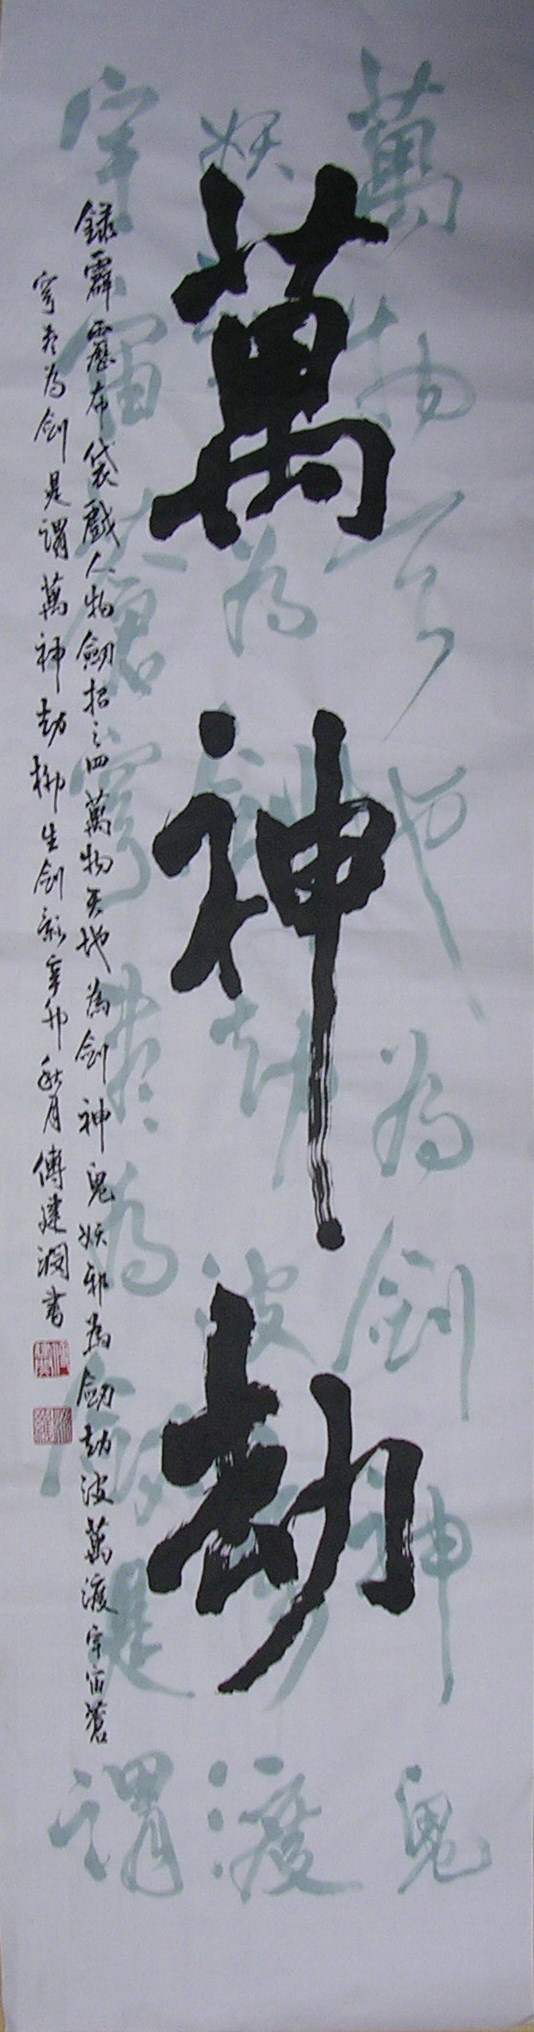 萬神劫
萬物天地為劍神鬼
妖邪為劍劫波萬渡
宇宙蒼穹盡為劍是謂
錄霹靂布袋戲人物劍招之四萬物天地為劍神鬼妖邪為劍劫波萬渡宇宙蒼
穹盡為劍是謂萬神劫柳生劍影辛卯秋月傅建潤書